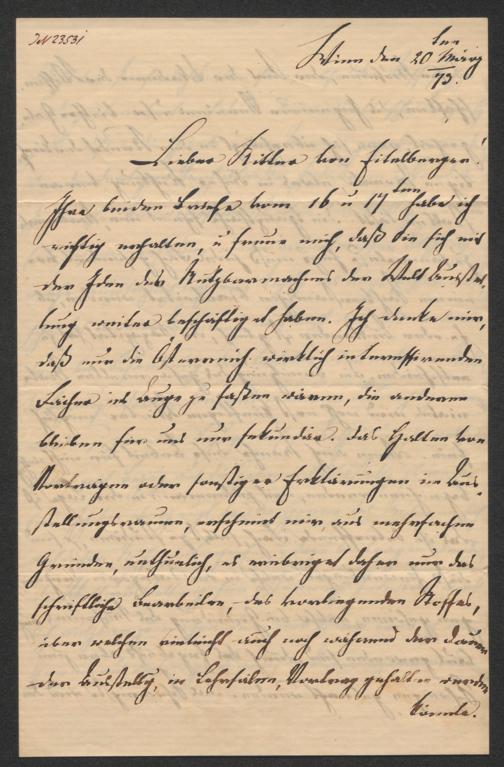 IN 23531
Wien den 20ten März
73.
Lieber Ritter von Eitelberger!
Ihre beiden Briefe vom 16 u 17ten habe ich
richtig erhalten, u freue mich, daß Sie sich mit
der Idee des Nutzbarmachens der Welt Ausstel,
lung weiter beschäftiget haben. Ich denke mir,
daß nur die Österreich wirklich interessirenden
Fächer ins Auge zu fassen wären, die anderen
bleiben für uns nur sekundär. Das Halten von
Vorträgen oder sonstiger Erklärungen im Aus,
stellungsraume, erscheint mir aus mehrfachen
Gründen, unthunlich, es erübriget daher nur das
schriftliche Bearbeiten, des vorliegenden Stoffes,
über welchen vieleicht auch noch während der Dauer
der Ausstellg, in Lehrsälen, Vortrag gehalten werden
könnte.